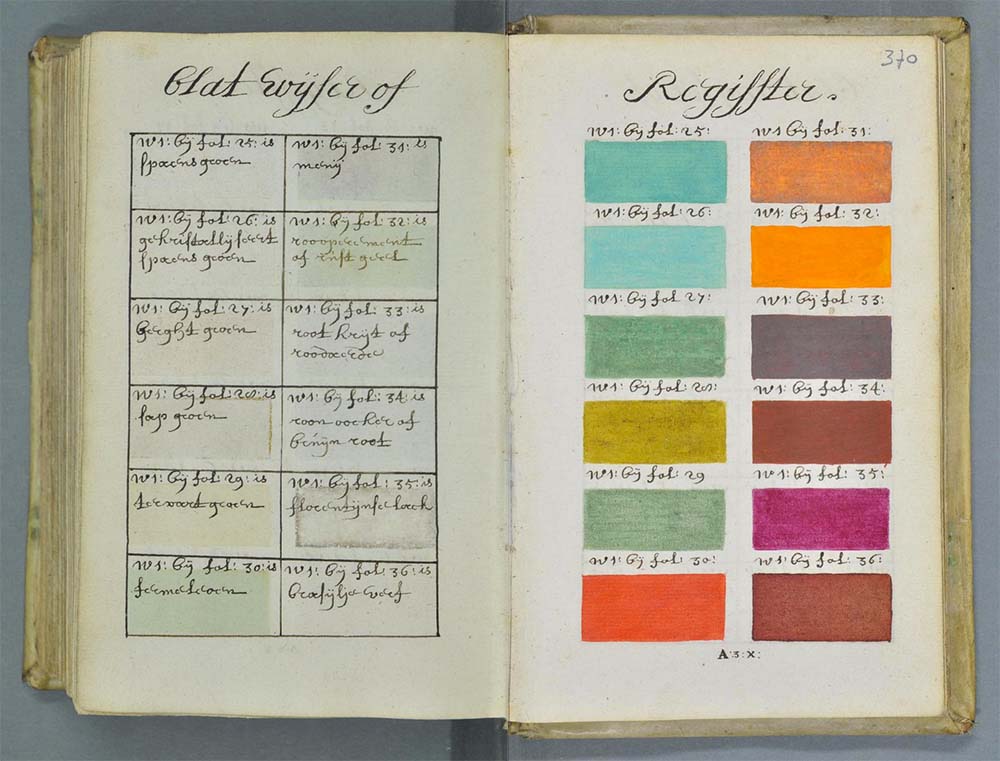 blat wijser of
w1: bij fol: 25: is
spaens groen
w1: bij fol: 31: is
menij
w1: bij fol: 26: is
gekristallijseert
spaens groen
w1: bij fol: 32: is
of rijst geel
w1: bij fol: 27: is
berght groen
w1: bij fol: 33: is
root krijt of
roodaerde
w1: bij fol: 28: is
sap groen
w1: bij fol: 34: is
roon oocker of
bruijn root
w1: bij fol: 29: is
groen
w1: bij fol: 35: is
florentijnse lack
w1: bij fol: 30: is
w1: bij fol: 36: is
brasijlje verf
370
Regisster.
w1: bij fol: 25:
w1 bij fol: 31:
w1: bij fol: 26:
w1: bij fol: 32:
w1: bij fol: 27:
w1: bij fol: 33:
w1: bij fol: 28:
w1: bij fol: 34:
w1: bij fol: 29
w1: bij fol: 35:
w1: bij fol: 30:
w1: bij fol: 36:
A:3:X: